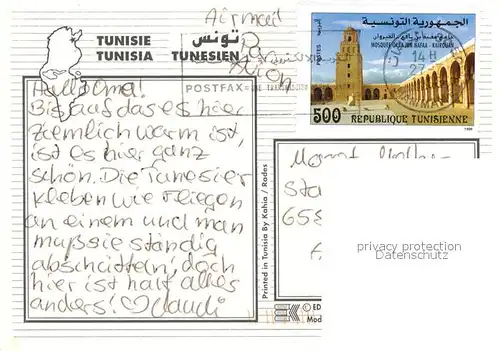 Airmail
TUNISIE تونس
TUNISIA TUNESIEN
Par
Avion
POSTFAX
الجمهورية التونسية
MOSQUEE OKBA IBN NAFAA - KAIROUAN
POSTES
14H
27
500 REPUBLIQUE TUNISIENNE
1996
Hallo Oma!
Bis auf das es hier
ziemlich warm ist,
ist es hier ganz
schön. Die Tunesier
kleben wie Fliegen
an einem und man
muß sie ständig
abschütteln, doch
hier ist halt alles
anders! ♡ Claudi
Printed in Tunisia By Kahia / Rades
Sta
658
privacy protection
Datenschutz
© ED
Mod